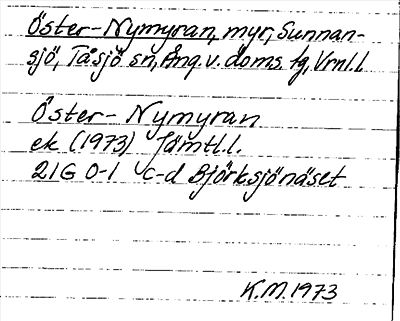 Öster-Nymyran, myr, Sunnan-
sjö, Tåsjö sn, Ång.v. doms. tg, Vrnl.l
Öster-Nymyran
ek (1973) Jämtl.l.
21G 0-1 c-d Björksjönäset
K.M. 1973